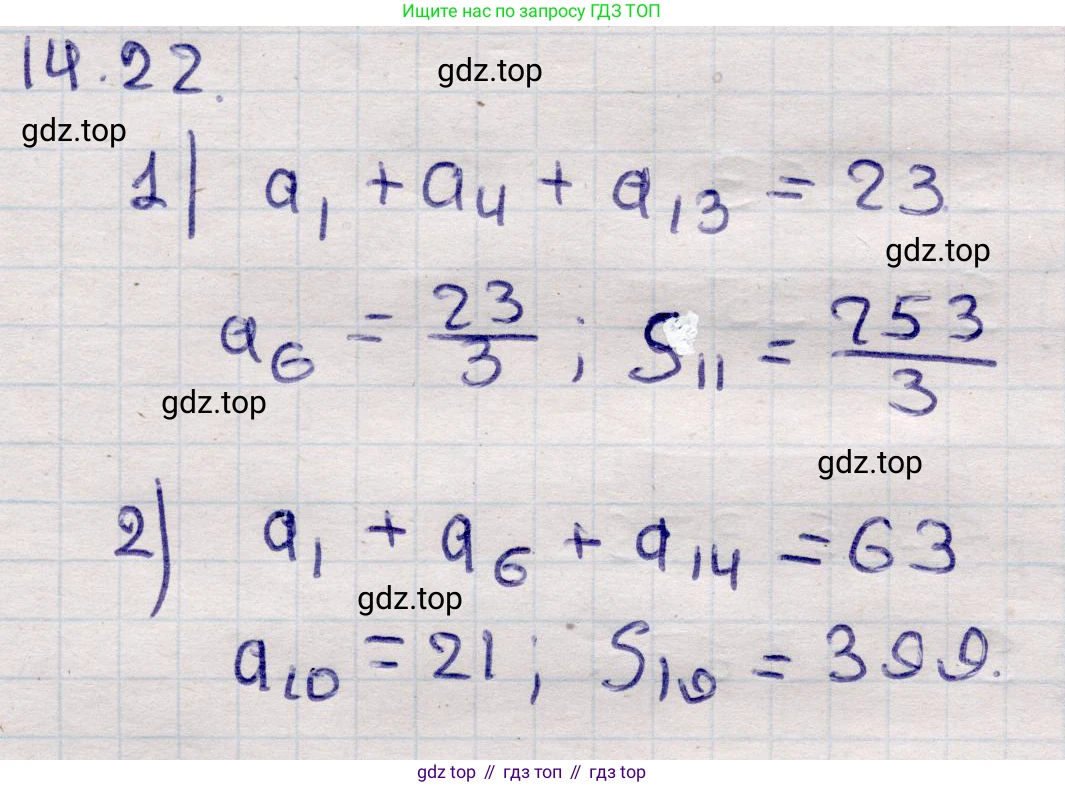 Ищите нас по запросу ГДЗ ТОП
14.22.
gdz.top
gdz.top
1) a₁ + a₄ + a₁₃ = 23
gdz.top
a₆ = 23/3 ; S₁₁ = 253/3
gdz.top
gdz.top
2) a₁ + a₆ + a₁₄ = 63
gdz.top
a₁₀ = 21; S₁₉ = 399.
gdz top // гдз топ // gdz top